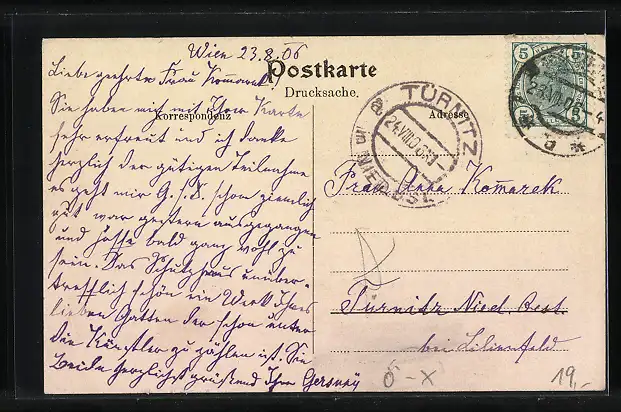 Wien 23.8.06
Liebe geehrte Frau Komarek!
Postkarte
Drucksache.
Korrespondenz
Adresse
Sie haben mich mit Ihrer Karte
sehr erfreut und ich danke
herzlich der gütigen Teilnahme
es geht mir G. s. D. schon ziemlich
gut war gestern ausgegangen
und hoffe bald ganz wohl zu
sein. Das Schutzhaus unüber-
trefflich schön ein Werk Ihres
lieben Gatten der schon unter
die Künstler zu zählen ist. Sie
Beide herzlichst grüßend Ihre
Frau Anna Komarek
Türnitz Nied Oest.
bei Lilienfeld
TÜRNITZ
24.VIII.06
5
5
19,-